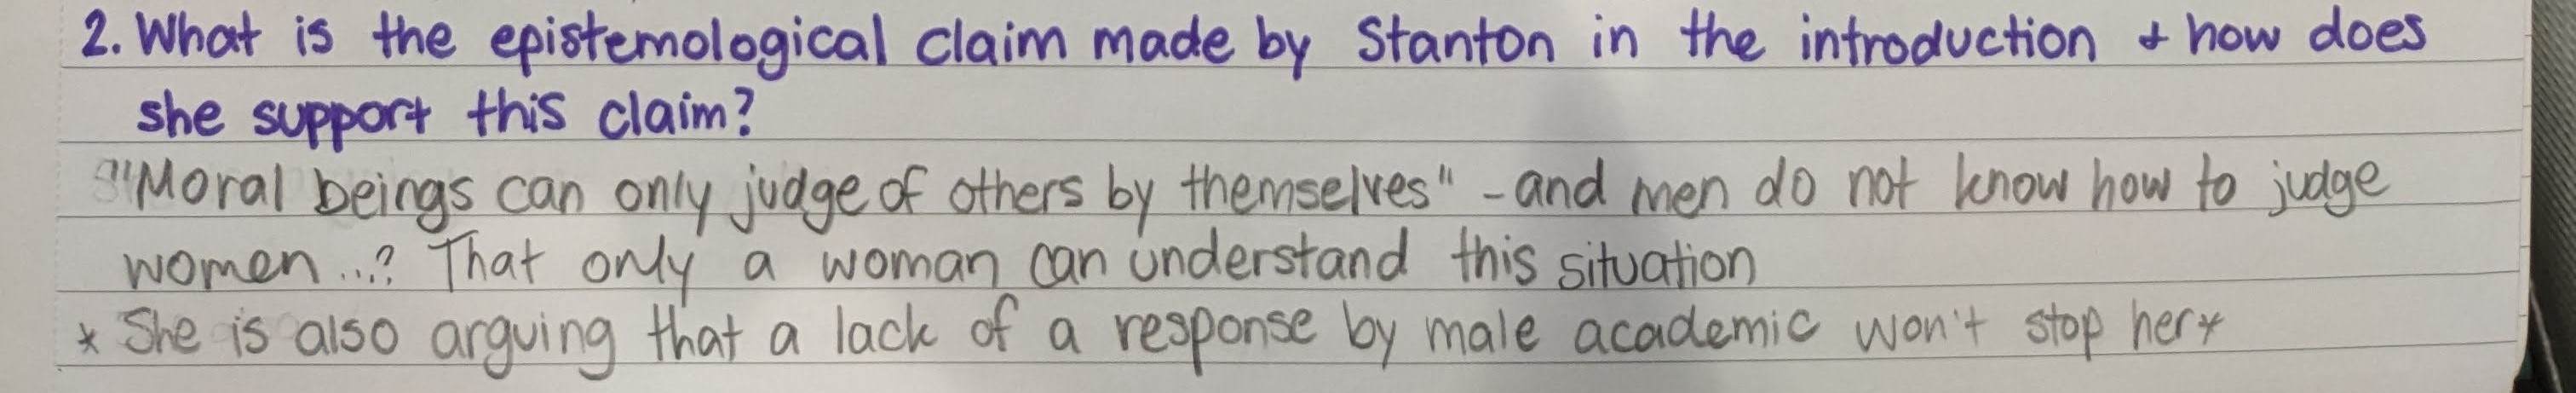 2. What is the epistemological claim made by Stanton in the introduction + how does
she support this claim?
"Moral beings can only judge of others by themselves" - and men do not know how to judge
women...? That only a woman can understand this situation
* She is also arguing that a lack of a response by male academic won't stop her*